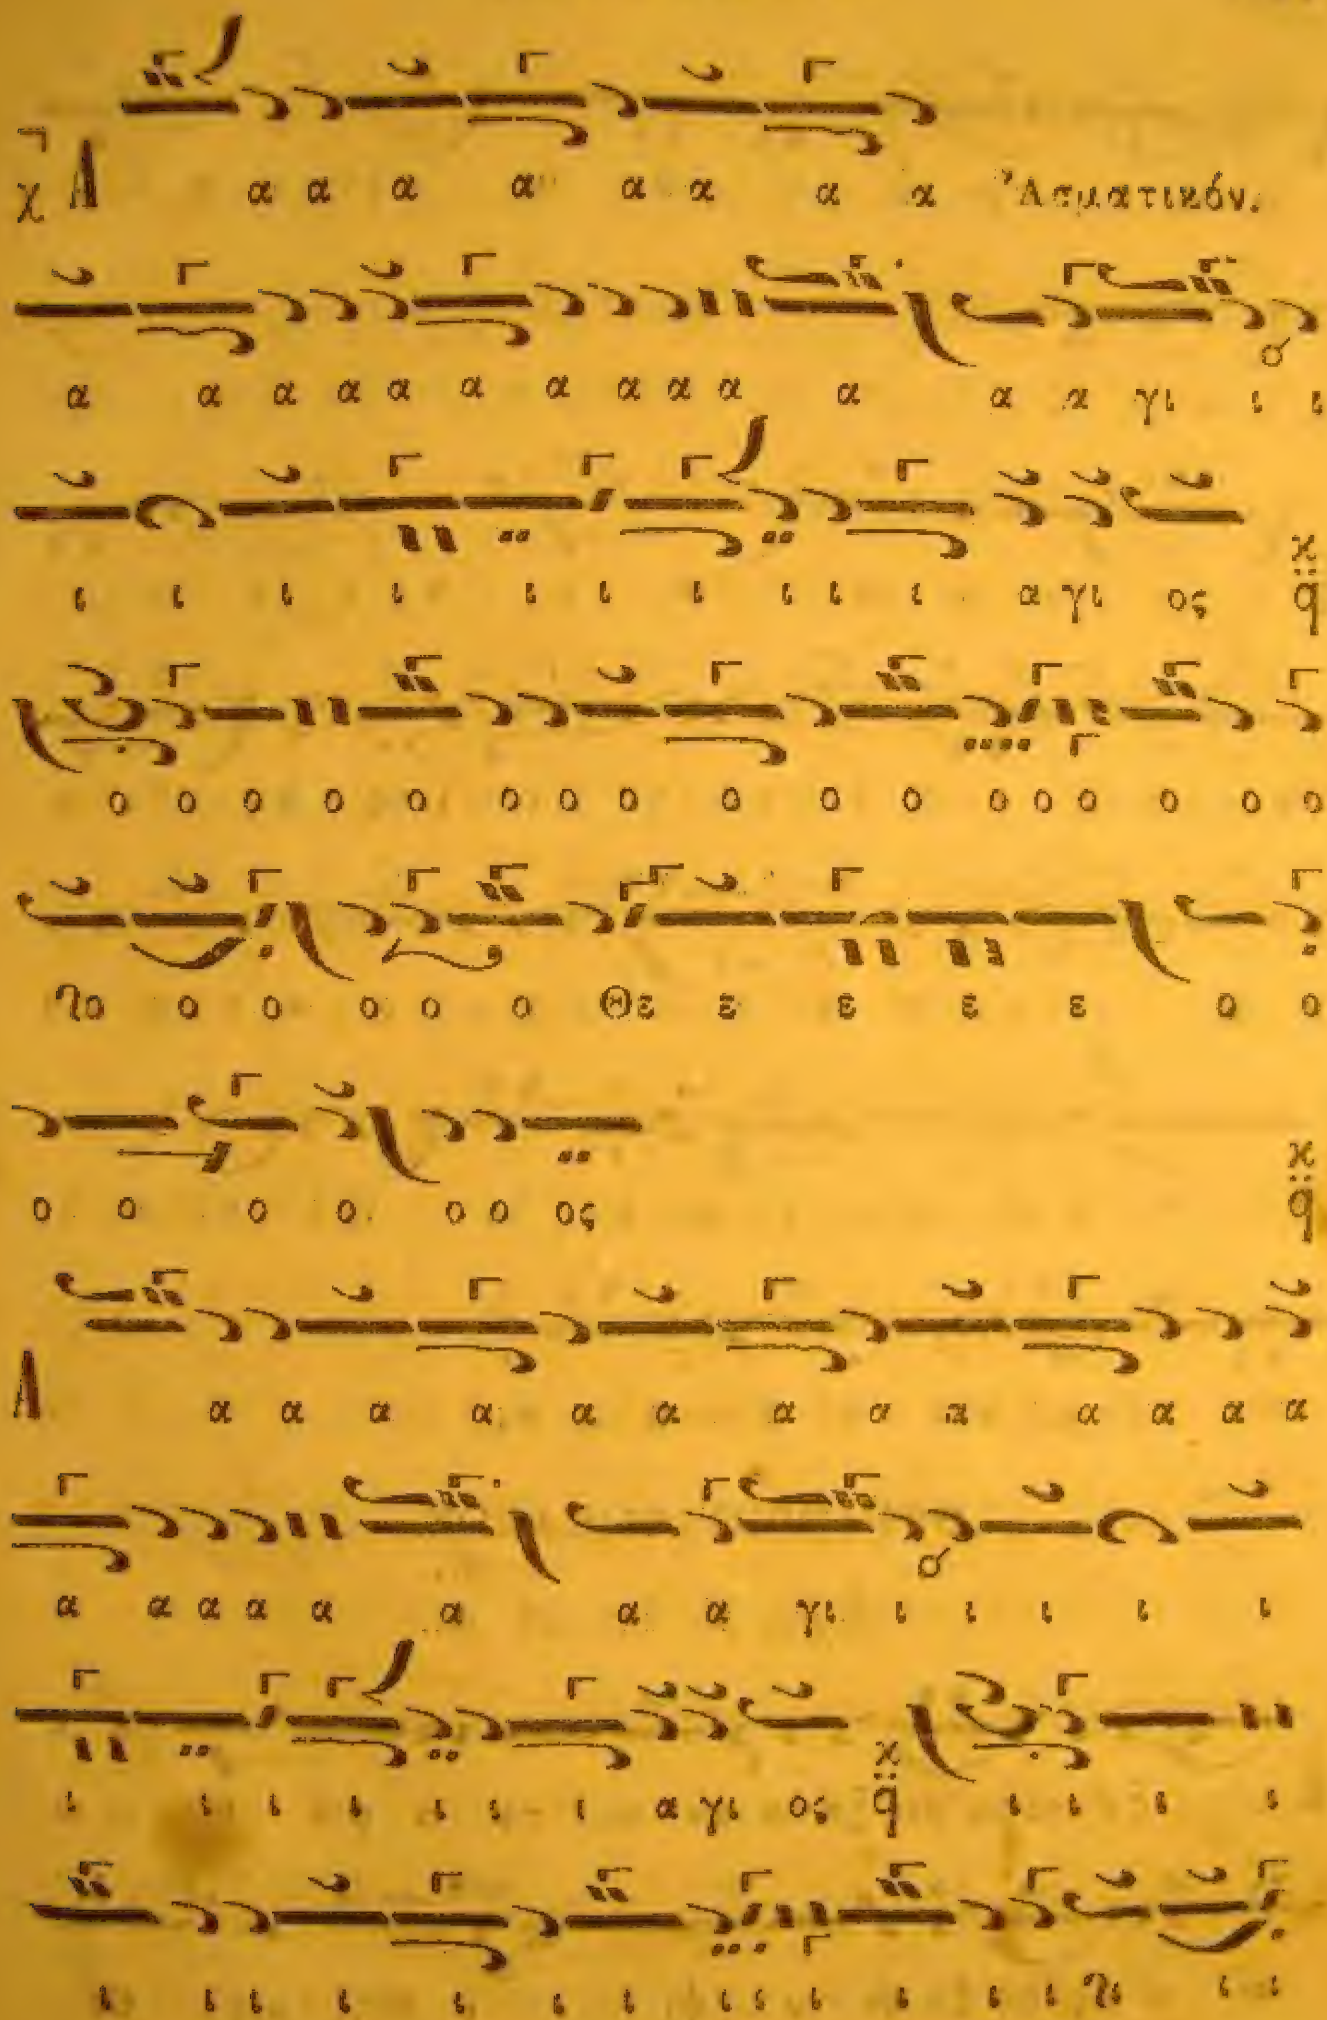 χ Α α α α α α α α α Ἀσματικόν.
α α α α α α α α α α α α α γι ι ι
ι ι ι ι ι ι ι ι ι ι α γι ος
ο ο ο ο ο ο ο ο ο ο ο ο ο ο ο ο ο
ο ο ο ο ο ο Θε ε ε ε ε ο ο
ο ο ο ο ο ο ος
Α α α α α α α α α α α α α α
α α α α α α α α γι ι ι ι ι ι
ι ι ι ι ι ι ι α γι ος ι ι ι ι
ι ι ι ι ι ι ι ι ι ι ι ι ι ι ι ι